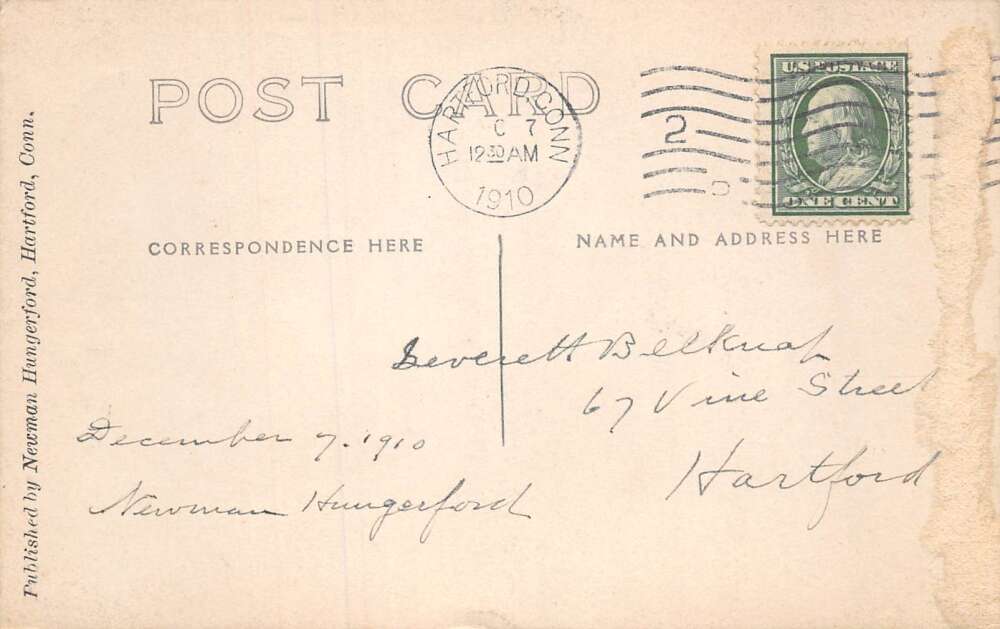 POST CARD
HARTFORD, CONN.
C 7
12 30 AM
1910
2
U.S. POSTAGE
ONE CENT
CORRESPONDENCE HERE
NAME AND ADDRESS HERE
Leverett Belknap
67 Vine Street
Hartford
December 7. 1910
Newman Hungerford
Published by Newman Hungerford, Hartford, Conn.